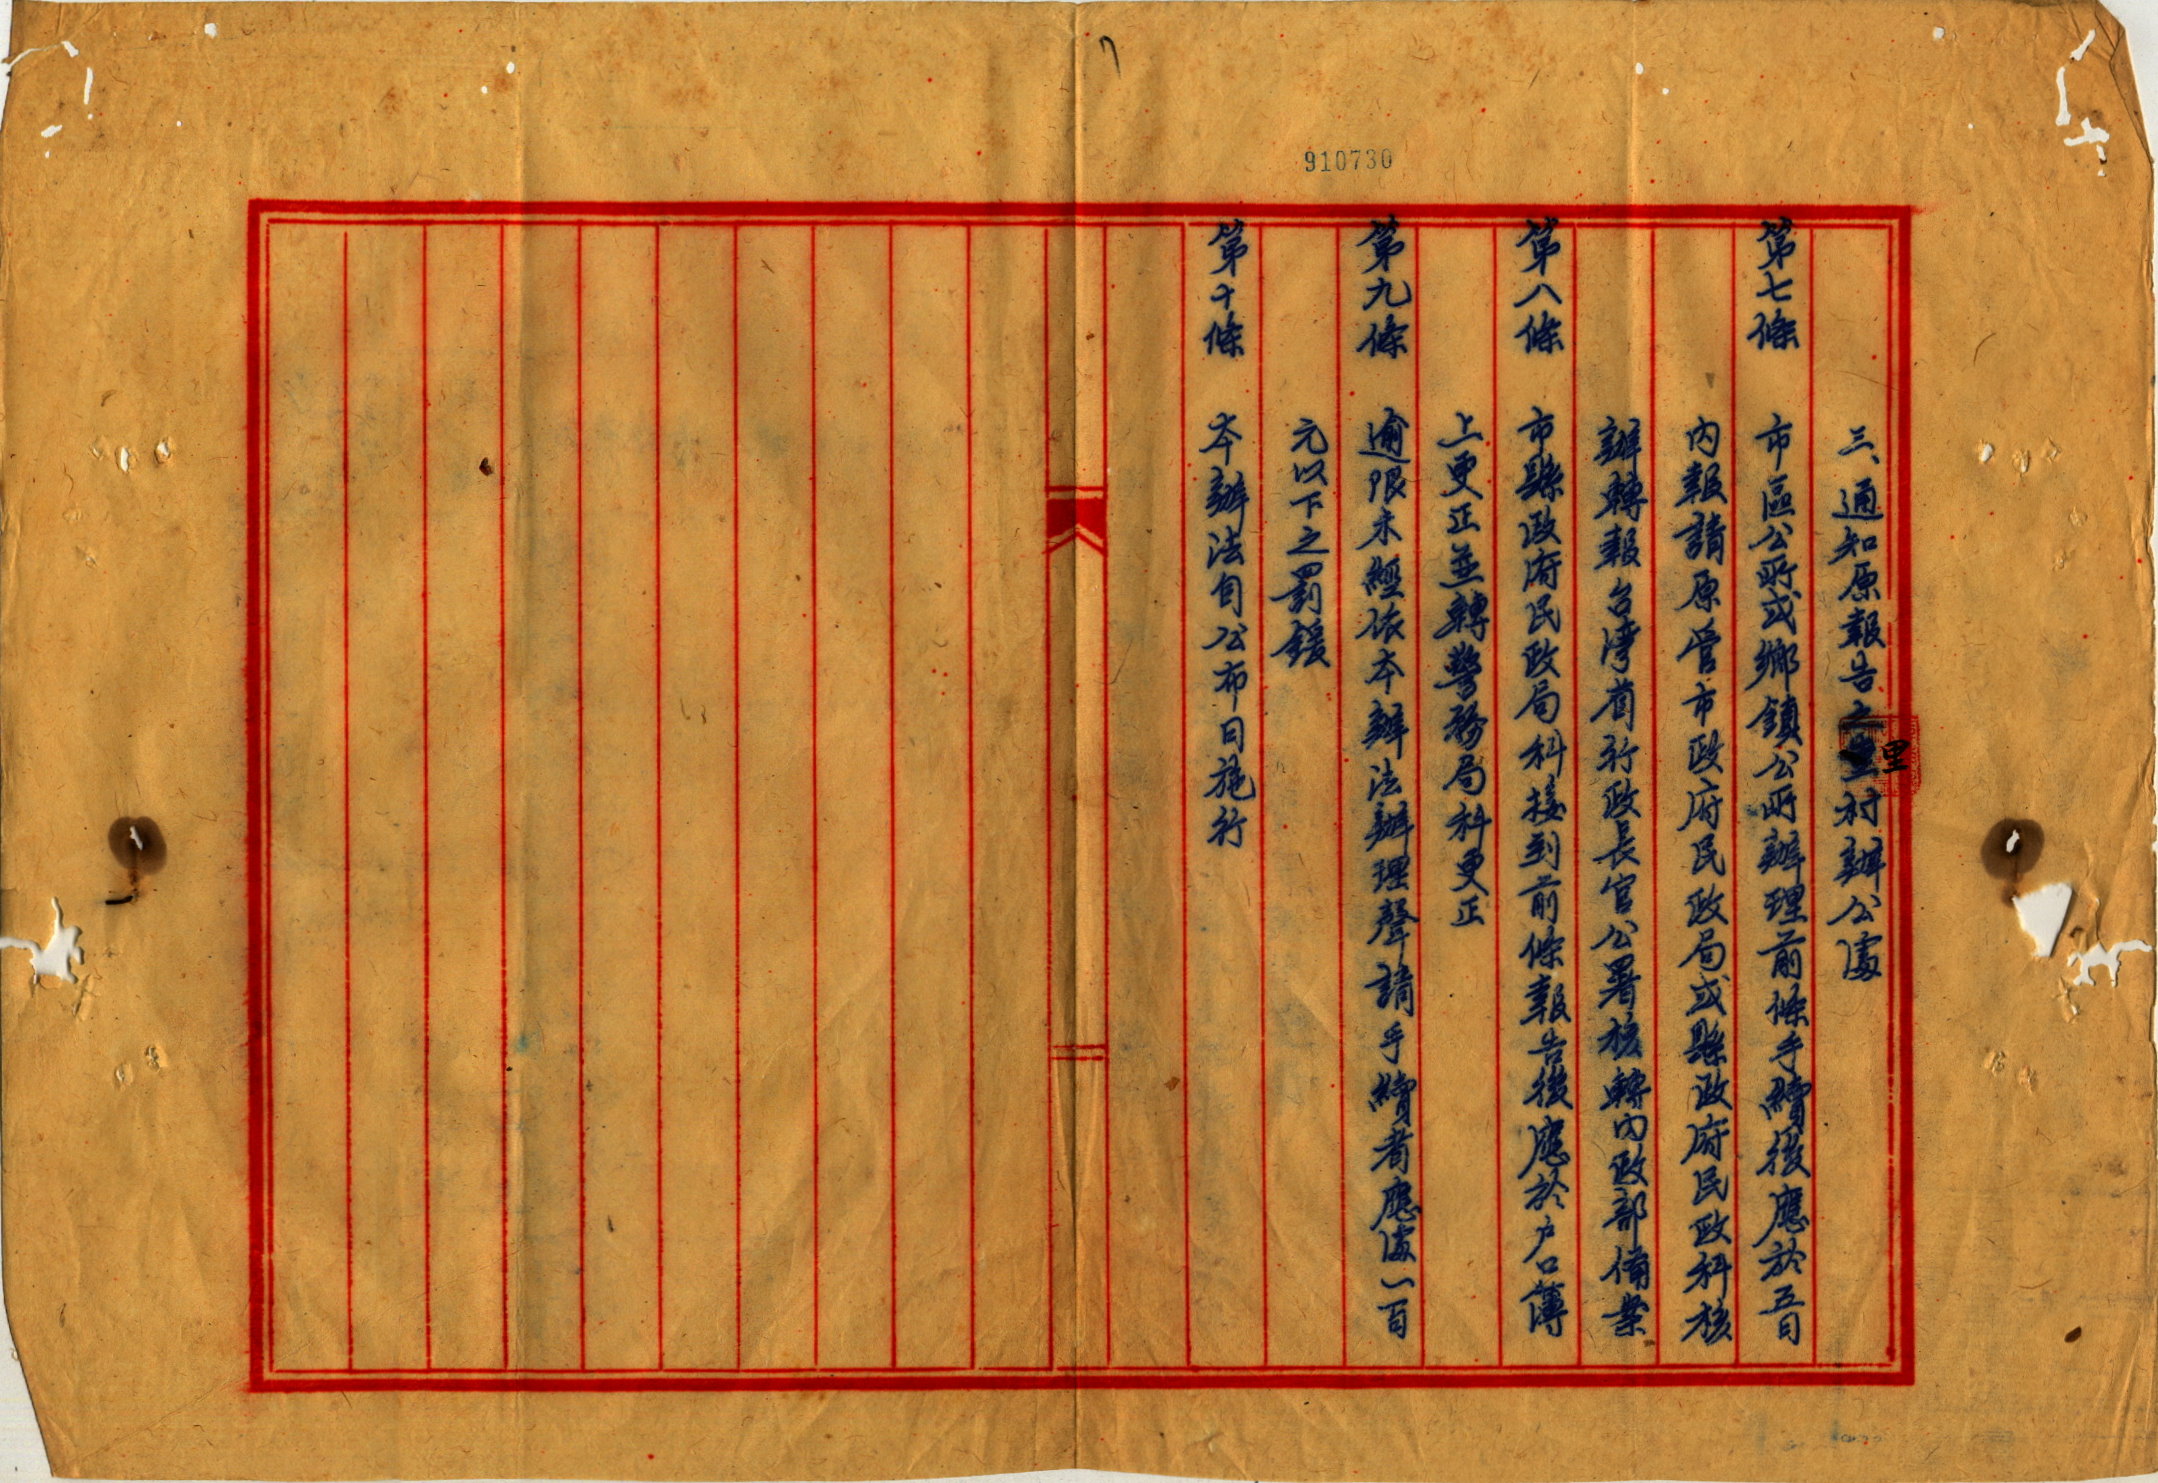 7
910730
三、通知原報告之里村辦公處
第七條 市區公所或鄉鎮公所辦理前條手續後應於五日
內報請原管市政府民政局或縣政府民政科核
辦轉報台灣省行政長官公署核轉內政部備案
第八條 市縣政府民政局科接到前條報告後應於户口簿
上更正並轉警務局科更正
第九條 逾限未經依本辦法辦理聲請手續者應處一百
元以下之罰鍰
第十條 本辦法自公布日施行